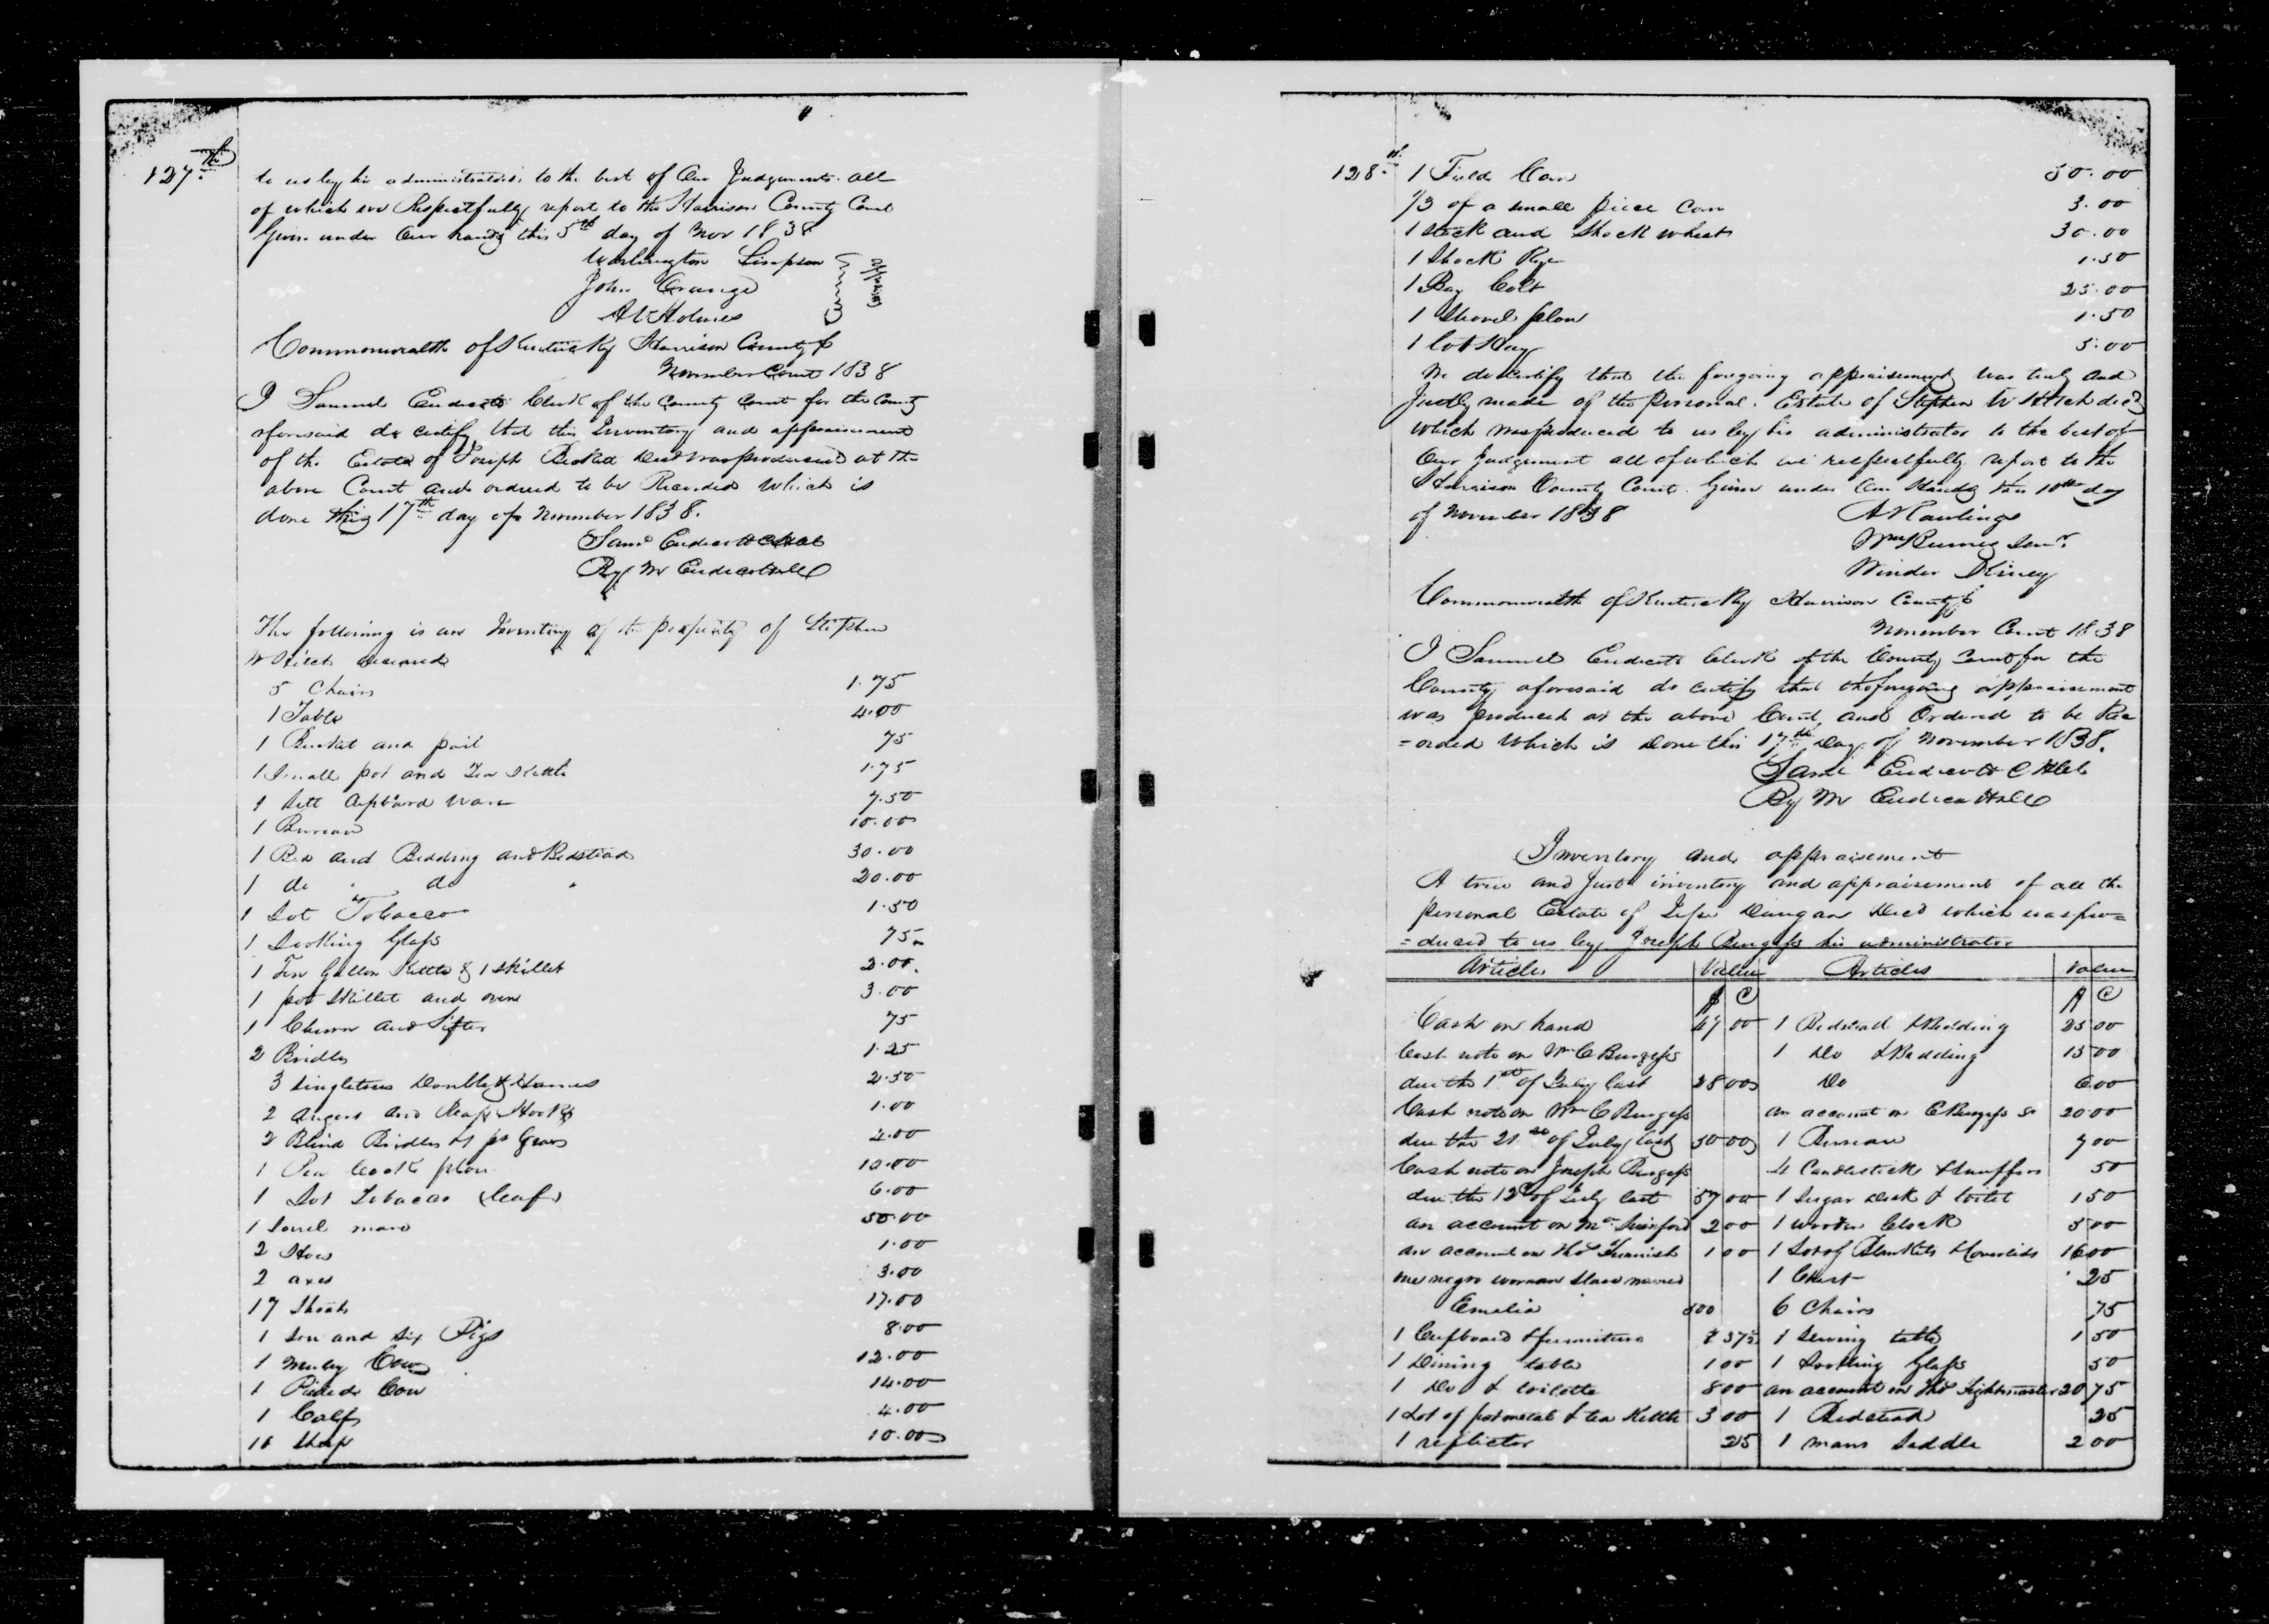 127th
to us by his administrators to the best of Our Judgments. all
of which we Respectfully report to the Harrison County Court
Given under Our hands this 5th day of Nov 1838
Washington Simpson
John Orange
A Holmes
Commonwealth of Kentucky Harrison County
November Court 1838
I Samuel Endicott Clerk of the County Court for the County
aforesaid do certify that this Inventory and appraisement
of the Estate of Joseph Decd was produced at the
above Court and ordered to be Recorded Which is
done this 17th day of November 1838.
Saml Endicott
By M Endicott
The following is an Inventory of the property of Stephen
W deceased
5 Chairs 1.75
1 Table 4.00
1 Bucket and pail 75
1 Small pot and Tea Kettle 1.75
1 Sett Cupboard Ware 7.50
1 Bureau 10.00
1 Bed and Bedding and Bedstead 30.00
1 do " do " 20.00
1 Lot Tobacco 1.50
1 Looking Glass 75
1 Ten Gallon Kettle & 1 Skillet 2.00
1 pot Skillet and oven 3.00
1 Churn and Sifter 75
2 Bridles 1.25
3 Singletrees Doubletree 2.50
2 augers and Reap Hooks 1.00
2 Blind Bridles & 1 pr Gears 2.00
1 Peacock plow 10.00
1 Lot Tobacco (leaf) 6.00
1 Sorrel mare 50.00
2 Hoes 1.00
2 axes 3.00
17 Shoats 17.00
1 Sow and Six Pigs 8.00
1 Muley Cow 12.00
1 Pieded Cow 14.00
1 Calf 4.00
Sheep 10.00
128th
1 Field Corn 50.00
1/3 of a small piece Corn 3.00
1 Stack and Shock wheat 30.00
1 Shock Rye 1.50
1 Bay Colt 25.00
1 Shovel plow 1.50
1 lot Hay 5.00
We do certify that the foregoing appraisement was truly and
Justly made of the Personal Estate of Stephen W decd
which was produced to us by his administrator to the best of
Our Judgement all of which we respectfully report to the
Harrison County Court. Given under Our Hands this 10th day
of November 1838
A Rawlings
Wm Senr.
Winder Kinney
Commonwealth of Kentucky Harrison County
November Court 1838
I Samuel Endicott Clerk of the County Court for the
County aforesaid do certify that the foregoing appraisement
was produced at the above Court and Ordered to be Rec
=orded Which is Done this 17th Day of November 1838.
Saml Endicott
By M Endicott
Inventory and appraisement
A true and Just inventory and appraisement of all the
personal Estate of Jesse Dungan Decd which was pro=
=duced to us by Joseph Burgess his administrator
Articles Value Articles Value
$ C $ C
Cash on hand 47 00 1 Bedstead & Bedding 25 00
Cash note on Wm C Burgess 1 Do & Bedding 15 00
due the 1st of July last 28 00 Do 6 00
Cash note on Wm C Burgess an account on Burgess 20 00
due the 21st of July last 50 00 1 Bureau 7 00
Cash note on Joseph Burgess 4 Candlesticks & Snuffers 50
due the 12 of July last 57 00 1 Sugar Desk & toilet 1 50
an account on 2 00 1 wooden Clock 5 00
an account on Thos 1 00 1 Lot of Blankets & Coverlids 16 00
one negro woman slave named 1 Chest 25
Emalia 6 Chairs 75
1 Cupboard & furniture 8 37½ 1 Sewing table 1 50
1 Dining table 1 00 1 Looking Glass 50
1 Do & toilette 8 00 an account on Thos 20 75
1 Lot of pot metal & tea Kettle 3 00 1 Bedstead 25
1 reflector 25 1 mans Saddle 2 00